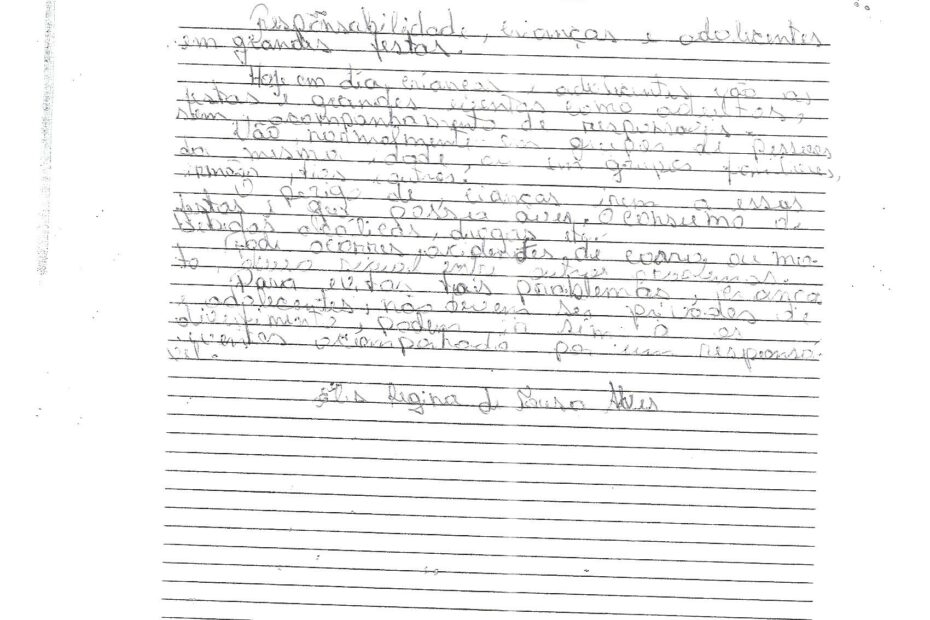 Responsabilidade, crianças e adolicentes
em grandes festas.
Hoje em dia, crianças, adolicentes vão as
festas e grandes eventos como adultos,
sem acompanhamento de responsavis.
Vão normalmente em grupos de pessoas
da mesma idade, ou em grupos familiares,
irmão, tios, outros.
O perigo de crianças irem a essas
festas, é que possa aver, o consumo de
bebidas alcólicas, drogas
Pode ocorrer, acidentes de carro ou mo-
to, entre outros problemas.
Para evitar tais problemas, criança
e adolecentes, não devem ser privados de
divertimento, podem ir sim a os
eventos acompanhado por um responsa-
vel.
Regina de Sousa Alves